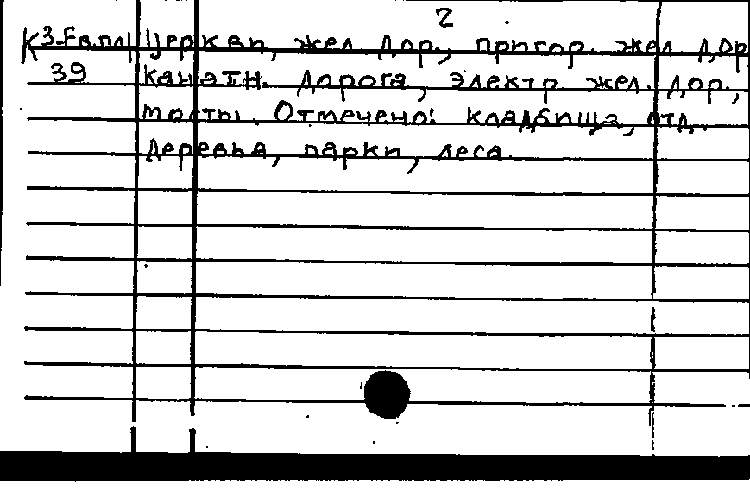 2
К3-Евпл Церкви, жел. дор., пригор. жел. дор.
39 канатн. дорога, электр. жел. дор.,
мосты. Отмечено: кладбища, отд.
деревья, парки, леса.